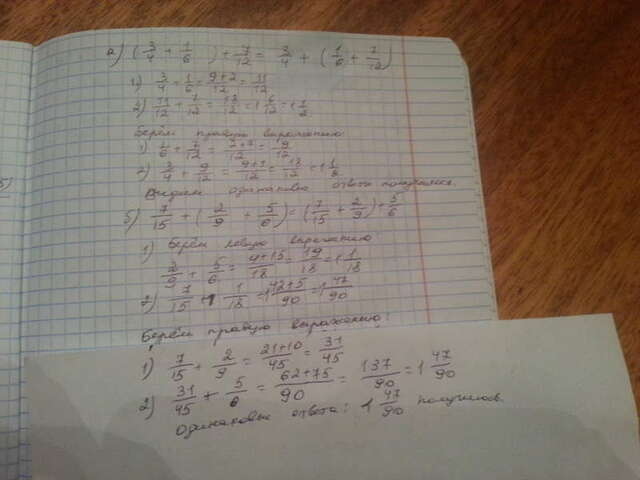 а) (3/4 + 1/6) + 7/12 = 3/4 + (1/6 + 7/12)
1) 3/4 + 1/6 = 9+2/12 = 11/12
2) 11/12 + 7/12 = 18/12 = 1 6/12 = 1 1/2
Берём правую выражению:
1) 1/6 + 7/12 = 2+7/12 = 9/12
2) 3/4 + 9/12 = 9+9/12 = 18/12 = 1 1/2
Видим одинаковые ответа получился.
б) 7/15 + (2/9 + 5/6) = (7/15 + 2/9) + 5/6
1) Берём левую выражению
2/9 + 5/6 = 9+15/18 = 19/18 = 1 1/18
2) 7/15 + 1 1/18 = 1 42+5/90 = 1 47/90
Берём правую выражению:
1) 7/15 + 2/9 = 21+10/45 = 31/45
2) 31/45 + 5/6 = 62+75/90 = 137/90 = 1 47/90
Одинаковые ответа: 1 47/90 получилось